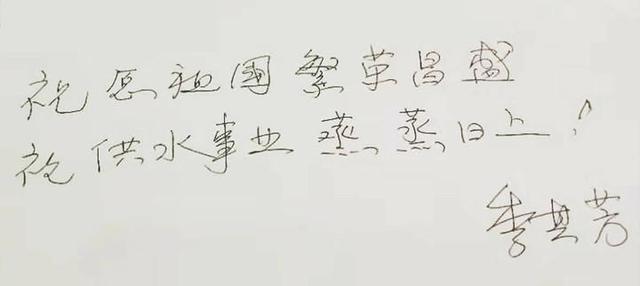 祝愿祖国繁荣昌盛
祝供水事业蒸蒸日上!
李其芳